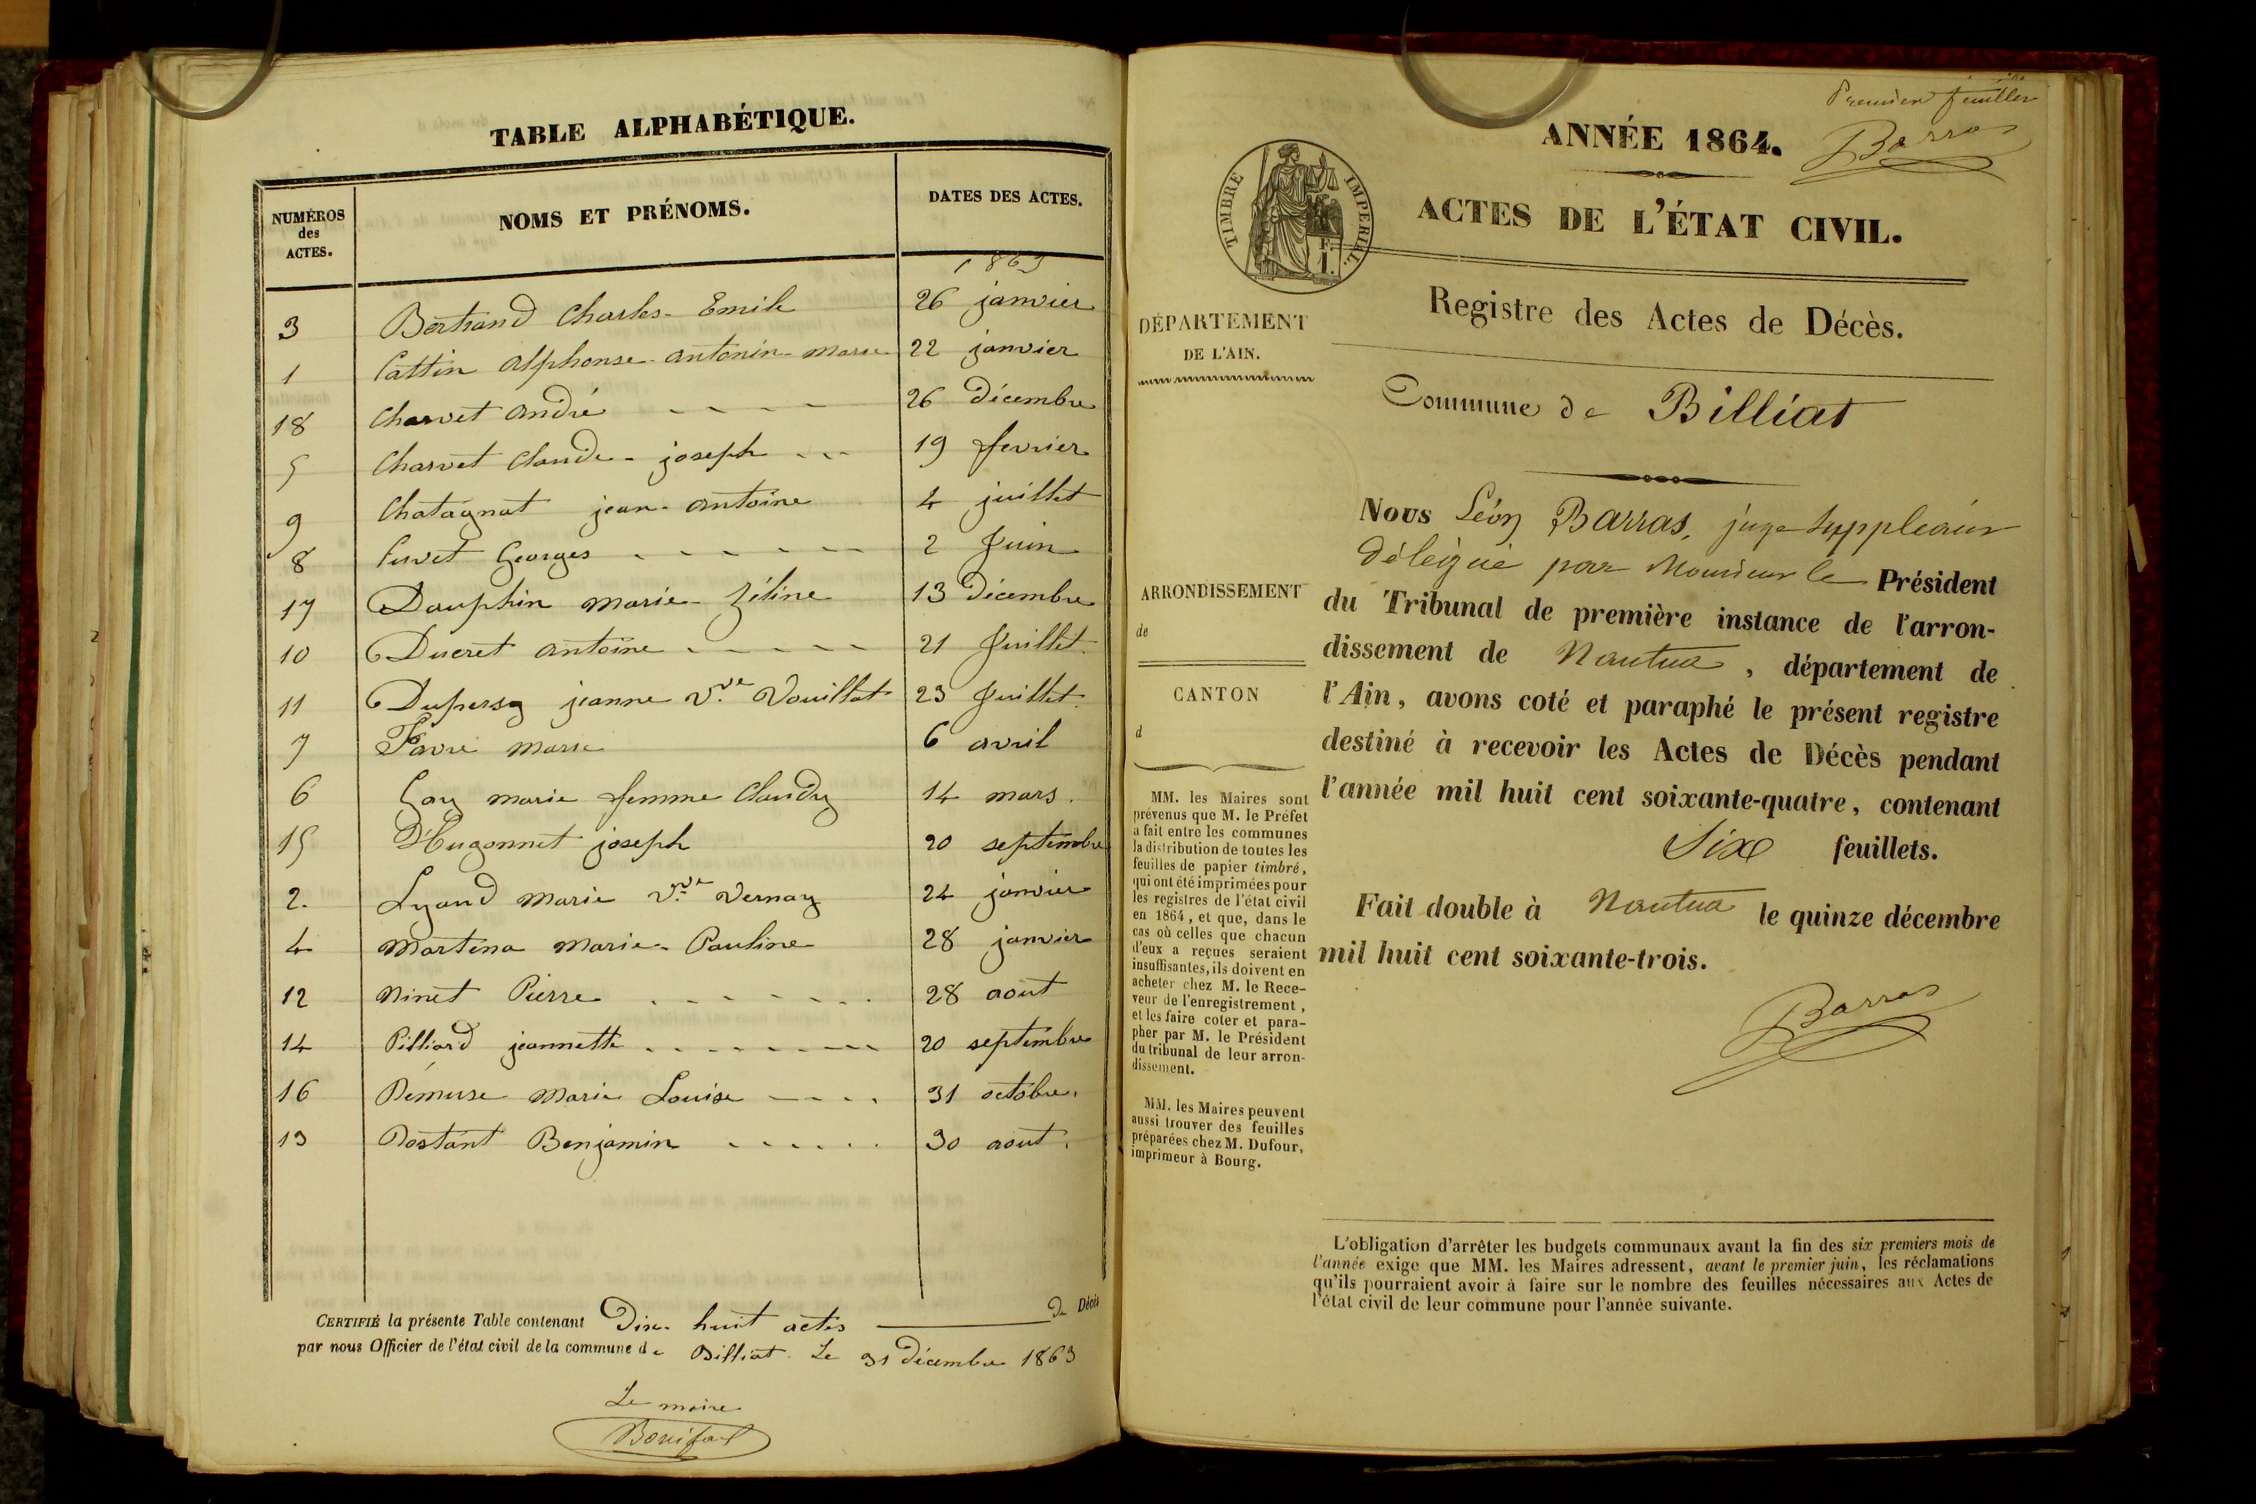 TABLE ALPHABÉTIQUE.
NUMÉROS des ACTES. NOMS ET PRÉNOMS. DATES DES ACTES.
1863
3 Bertrand Charles-Emile 26 janvier
1 Cattin Alphonse-antonin-marie 22 janvier
18 Charvet andré 26 décembre
5 Charvet Claude-joseph 19 fevrier
9 Chatagnat jean-antoine 4 juillet
8 Curvet Georges 2 Juin
17 Dauphin marie-Zéline 13 décembre
10 Ducret antoine 21 Juillet.
11 Dupersy jeanne Vve Vouillat 23 Juillet.
7 Favre marie 6 avril
6 Gay marie femme Claudy 14 mars.
15 D'Hugonnet joseph 20 septembre
2. Lyaud marie Vve Vernay 24 janvier
4 Martina marie-Pauline 28 janvier
12 Ninet Pierre 28 aout
14 Pilliard jeannette 20 septembre
16 Rémuse Marie Louise 31 octobre.
13 Rostant Benjamin 30 aout.
CERTIFIÉ la présente Table contenant Dix-huit actes de Décès
par nous Officier de l'état civil de la commune de Billiat. Le 31 décembre 1863
Le maire
Premier feuillet
Barras
ANNÉE 1864.
TIMBRE IMPERIAL.
ACTES DE L'ÉTAT CIVIL.
Registre des Actes de Décès.
DÉPARTEMENT
DE L'AIN.
Commune de Billiat
ARRONDISSEMENT
de
CANTON
d
MM. les Maires sont
prévenus que M. le Préfet
a fait entre les communes
la distribution de toutes les
feuilles de papier timbré,
qui ont été imprimées pour
les registres de l'état civil
en 1864, et que, dans le
cas où celles que chacun
d'eux a reçues seraient
insuffisantes, ils doivent en
acheter chez M. le Rece-
veur de l'enregistrement,
et les faire coter et para-
pher par M. le Président
du tribunal de leur arron-
dissement.
MM. les Maires peuvent
aussi trouver des feuilles
préparées chez M. Dufour,
imprimeur à Bourg.
Nous Léon Barras, juge suppléant
délégué par Monsieur le Président
du Tribunal de première instance de l'arron-
dissement de Nantua, département de
l'Ain, avons coté et paraphé le présent registre
destiné à recevoir les Actes de Décès pendant
l'année mil huit cent soixante-quatre, contenant
Six feuillets.
Fait double à Nantua le quinze décembre
mil huit cent soixante-trois.
Barras
L'obligation d'arrêter les budgets communaux avant la fin des six premiers mois de
l'année exige que MM. les Maires adressent, avant le premier juin, les réclamations
qu'ils pourraient avoir à faire sur le nombre des feuilles nécessaires aux Actes de
l'état civil de leur commune pour l'année suivante.